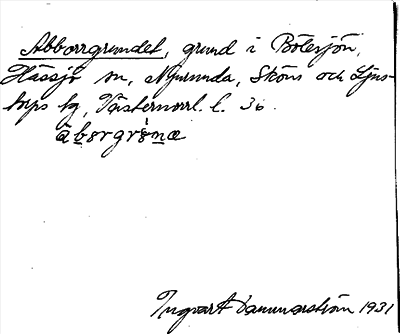 Abborrgrundet, grund i Bölesjön,
Hässjö sn, Njurunda, Sköns och Ljus-
torps tg, Västernorrl. l. 36.
Ingvart Dannerström 1931